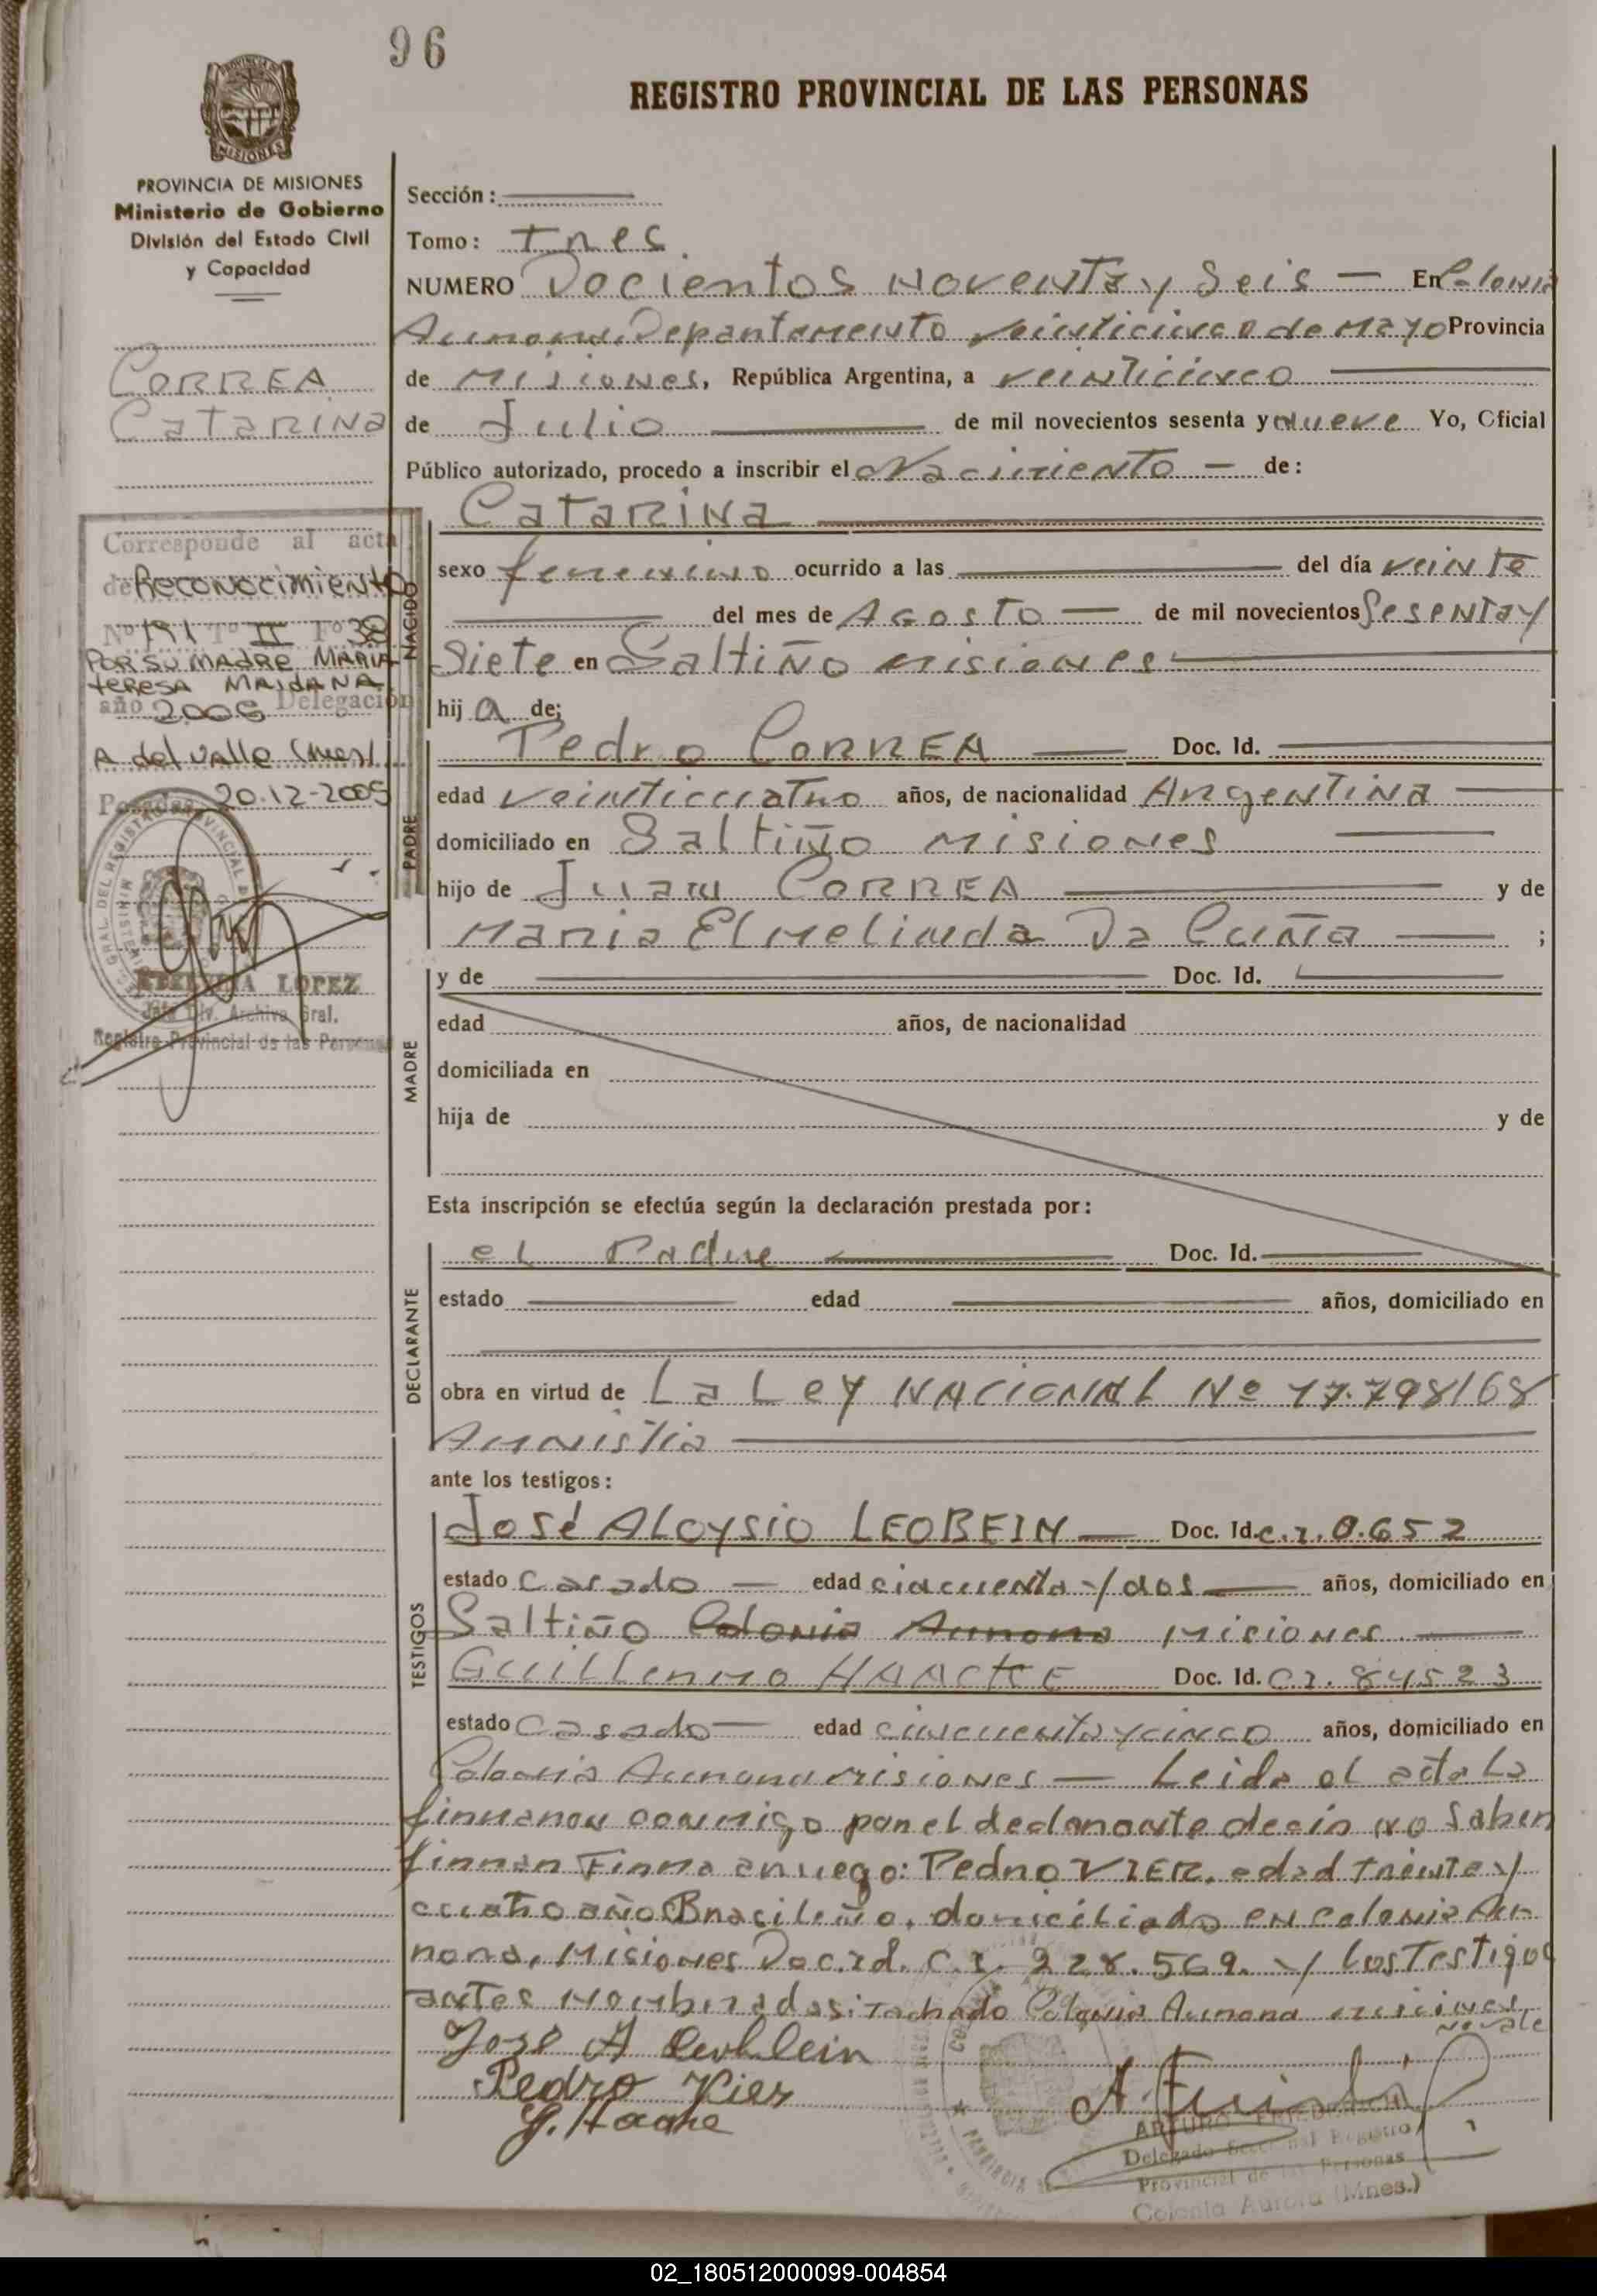 96
REGISTRO PROVINCIAL DE LAS PERSONAS
MISIONES
PROVINCIA DE MISIONES
Ministerio de Gobierno
División del Estado Civil
y Capacidad
CORREA
CATARINA
Corresponde al acta
de Reconocimiento
Nº 191 Tº II Fº 38
POR SU MADRE MARIA
TERESA MAIDANA
año 2005 Delegación
A del Valle (Mnes)
Posadas, 20-12-2005
LOPEZ
Jefe Div. Archivo Gral.
Registro Provincial de las Personas
Sección:
Tomo: Tres
NUMERO Docientos Noventa y Seis — En Colonia
Aurora. Departamento Veinticinco de Mayo Provincia
de Misiones, República Argentina, a veinticinco
de Julio de mil novecientos sesenta y nueve Yo, Oficial
Público autorizado, procedo a inscribir el Nacimiento — de:
NACIDO
Catarina
sexo femenino ocurrido a las del día veinte
del mes de Agosto — de mil novecientos Sesenta y
Siete en Saltiño Misiones
hij a de;
PADRE
Pedro CORREA Doc. Id.
edad veinticuatro años, de nacionalidad Argentina
domiciliado en Saltiño Misiones
hijo de Juan CORREA y de
Maria Elmelinda Da Cuña ;
MADRE
y de Doc. Id.
edad años, de nacionalidad
domiciliada en
hija de y de
Esta inscripción se efectúa según la declaración prestada por:
DECLARANTE
el Padre Doc. Id.
estado edad años, domiciliado en
obra en virtud de La Ley NACIONAL Nº 17.798/68
Amnistia
ante los testigos:
TESTIGOS
José Aloysio LEOBEIN — Doc. Id. C.I. 0.652
estado Casado — edad cincuenta y dos años, domiciliado en
Saltiño Colonia Aurora Misiones.
Guillermo HAACKE Doc. Id. C.I. 84523
estado Casado — edad cincuenta y cinco años, domiciliado en
Colonia Aurora Misiones — Leida el acta La
firmaron conmigo por el declarante decir no Saber
firmar Firma a ruego: Pedro VIER, edad treinta y
cuatro año Brasileño, domiciliado en Colonia Au-
rora, Misiones Doc. Id. C.I. 228.569. y los Testigos
antes nombrados: Tachado Colonia Aurora misiones,
no vale
José A Leobein
Pedro Vier
G. Haacke
ARTURO FRIEDRICH
Delegado Seccional Registro
Provincial de las Personas
Colonia Aurora (Mnes.)
02_180512000099-004854